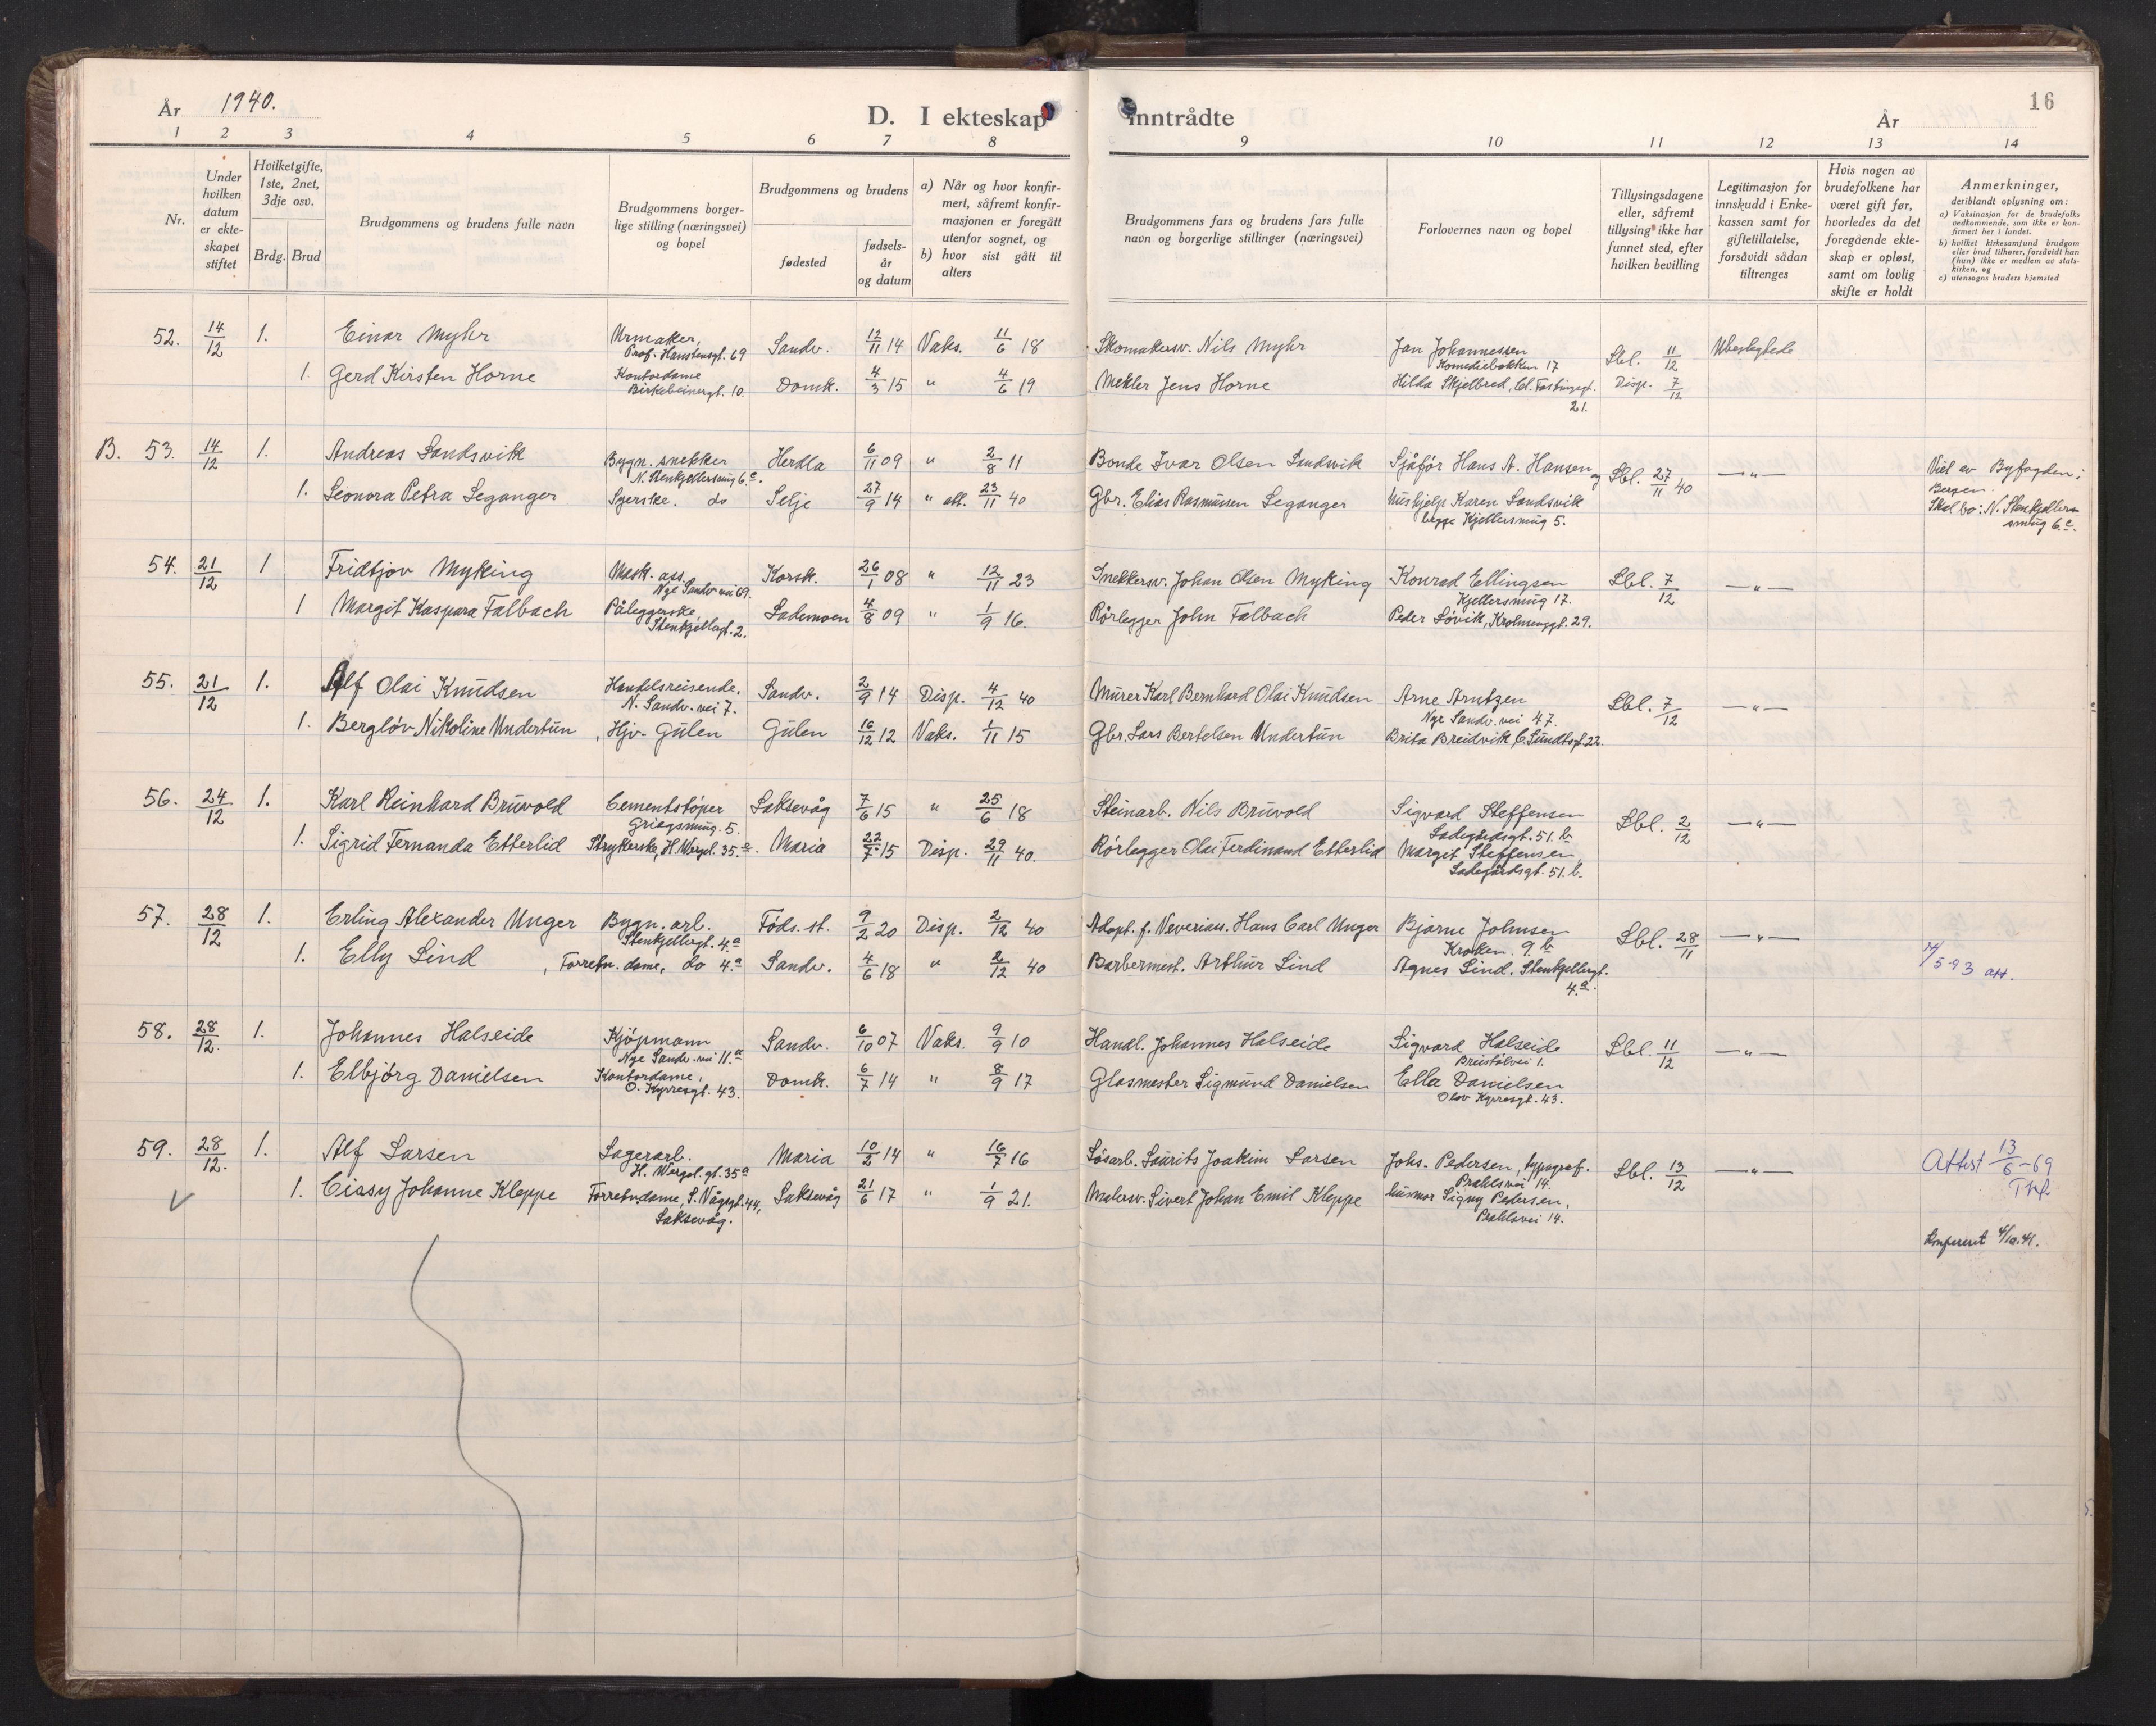 År 1940.
D. I ekteskap inntrådte
År
16
1 2 3 4 5 6 7 8 9 10 11 12 13 14
Nr.
Under hvilken datum er ekteskapet stiftet
Hvilket gifte, 1ste, 2net, 3dje osv.
Brdg. Brud
Brudgommens og brudens fulle navn
Brudgommens borgerlige stilling (næringsvei) og bopel
Brudgommens og brudens
fødested
fødselsår og datum
a) Når og hvor konfirmert, såfremt konfirmasjonen er foregått utenfor sognet, og
b) hvor sist gått til alters
Brudgommens fars og brudens fars fulle navn og borgerlige stillinger (næringsvei)
Forlovernes navn og bopel
Tillysingsdagene eller, såfremt tillysing ikke har funnet sted, efter hvilken bevilling
Legitimasjon for innskudd i Enkekassen samt for giftetillatelse, forsåvidt sådan tiltrenges
Hvis nogen av brudefolkene har været gift før, hvorledes da det foregående ekteskap er opløst, samt om lovlig skifte er holdt
Anmerkninger, deriblandt oplysning om:
a) Vaksinasjon for de brudefolks vedkommende, som ikke er konfirmert her i landet.
b) hvilket kirkesamfund brudgom eller brud tilhører, forsåvidt han (hun) ikke er medlem av statskirken, og
c) utensogns bruders hjemsted
52. 14/12 1. Einar Myhr Urmaker, Prof. Hanstensgt. 69 Sandv. 12/11 14 Vaks. 11/6 18 Skomakersv. Nils Myhr Jan Johannessen Komediebakken 17 Lbl. 11/12 Ubeskyttede
1. Gerd Kirsten Horne Kontordame Birkebeinergt. 10. Domk. 4/3 15 " 4/6 19 Mekler Jens Horne Hilda Skjelbred, Cl. Fastingsgt. 21. Disp. 7/12
B. 53. 14/12 1. Andreas Landsvik Bygn. snekker N. Stenkjellersmug 6.c. Herdla 6/11 09 " 2/8 11 Bonde Ivar Olsen Landsvik Sjåfør Hans A. Hansen og Lbl. 27/11 40 —"— Viet av Byfogden i Bergen.
1. Leonora Petra Seganger Syerske. do Selje 27/9 14 " att. 23/11 40 Gbr. Elias Rasmussen Seganger hushjelp Karen Landsvik begge Kjellersmug 5. Skal bo: N. Stenkjellersmug 6.c.
54. 21/12 1 Fridtjov Myking Mask. ass. Nye Sandv. vei 69. Korsk. 26/1 08 " 12/11 23 Snekkersv. Johan Olsen Myking Konrad Ellingsen Kjellersmug 17. Lbl. 7/12 —"—
1 Margit Kaspara Falbach Påleggerske Stenkjellergt. 2. Lademoen 4/8 09 " 1/9 16. Rørlegger John Falbach Peder Løvik, Krohnengt. 29.
55. 21/12 1. Alf Olai Knudsen Handelsreisende. N. Sandv. vei 7. Sandv. 2/9 14 Disp. 4/12 40 Murer Karl Bernhard Olai Knudsen Arne Arntzen Nye Sandv. vei 47. Lbl. 7/12 —"—
1. Bergløv Nikoline Undertun, Hjv. Gulen Gulen 16/12 12 Vaks. 1/11 15 Gbr. Lars Bertelsen Undertun Brita Breidvik C. Sundtsgt. 22.
56. 24/12 1. Karl Reinhard Bruvold Cementstøper Griegsmug. 5. Laksevåg 7/6 15 " 25/6 18 Steinarb. Nils Bruvold Sigvard Steffensen Ladegårdsgt. 51. b. Lbl. 2/12 —"—
1. Sigrid Fernanda Etterlid Strykerske, H. Wergel. 35.a. Maria 22/7 15 Disp. 29/11 40. Rørlegger Olai Ferdinand Etterlid Margit Steffensen Ladegårdsgt. 51. b.
57. 28/12 1. Erling Alexander Unger Bygn. arb. Stenkjellergt. 4.a Føds. st. 9/2 20 Disp. 2/12 40 Adopt. f. Hans Carl Unger Bjarne Johnsen Kroken. 9. b Lbl. 28/11 —"—
1. Elly Lind, Forretn. dame, do 4.a Sandv. 4/6 18 " 2/12 40 Barbermest. Arthur Lind Agnes Lind. Stenkjellergt. 4.a. 5-93 att.
58. 28/12. 1. Johannes Halseide Kjøpmann Nye Sandv. vei 11.a Sandv. 6/10 07 Vaks. 9/9 10 Handl. Johannes Halseide Sigvard Halseide Breistølvei 1. Lbl. 11/12 —"—
1. Elbjørg Danielsen Kontordame, O. Kyrresgt. 43. Domk. 6/7 14 " 8/9 17 Glasmester Sigmund Danielsen Ella Danielsen Olav Kyrresgt. 43.
59. 28/12. 1. Alf Larsen Lagerarb. H. Wergel. gt. 35a Maria 10/2 14 " 16/7 16 Løsarb. Laurits Joakim Larsen Johs. Pedersen, typograf. Prahlsvei 14. Lbl. 13/12 —"— Attest 13/6-69
1. Cissy Johanne Kleppe Forretn.dame, S. Vågsgt. 44, Laksevåg. Laksevåg 21/6 17 " 1/9 21. Malersv. Sivert Johan Emil Kleppe husmor Signy Pedersen, Prahlsvei 14.
Konfereret 4/10.41.